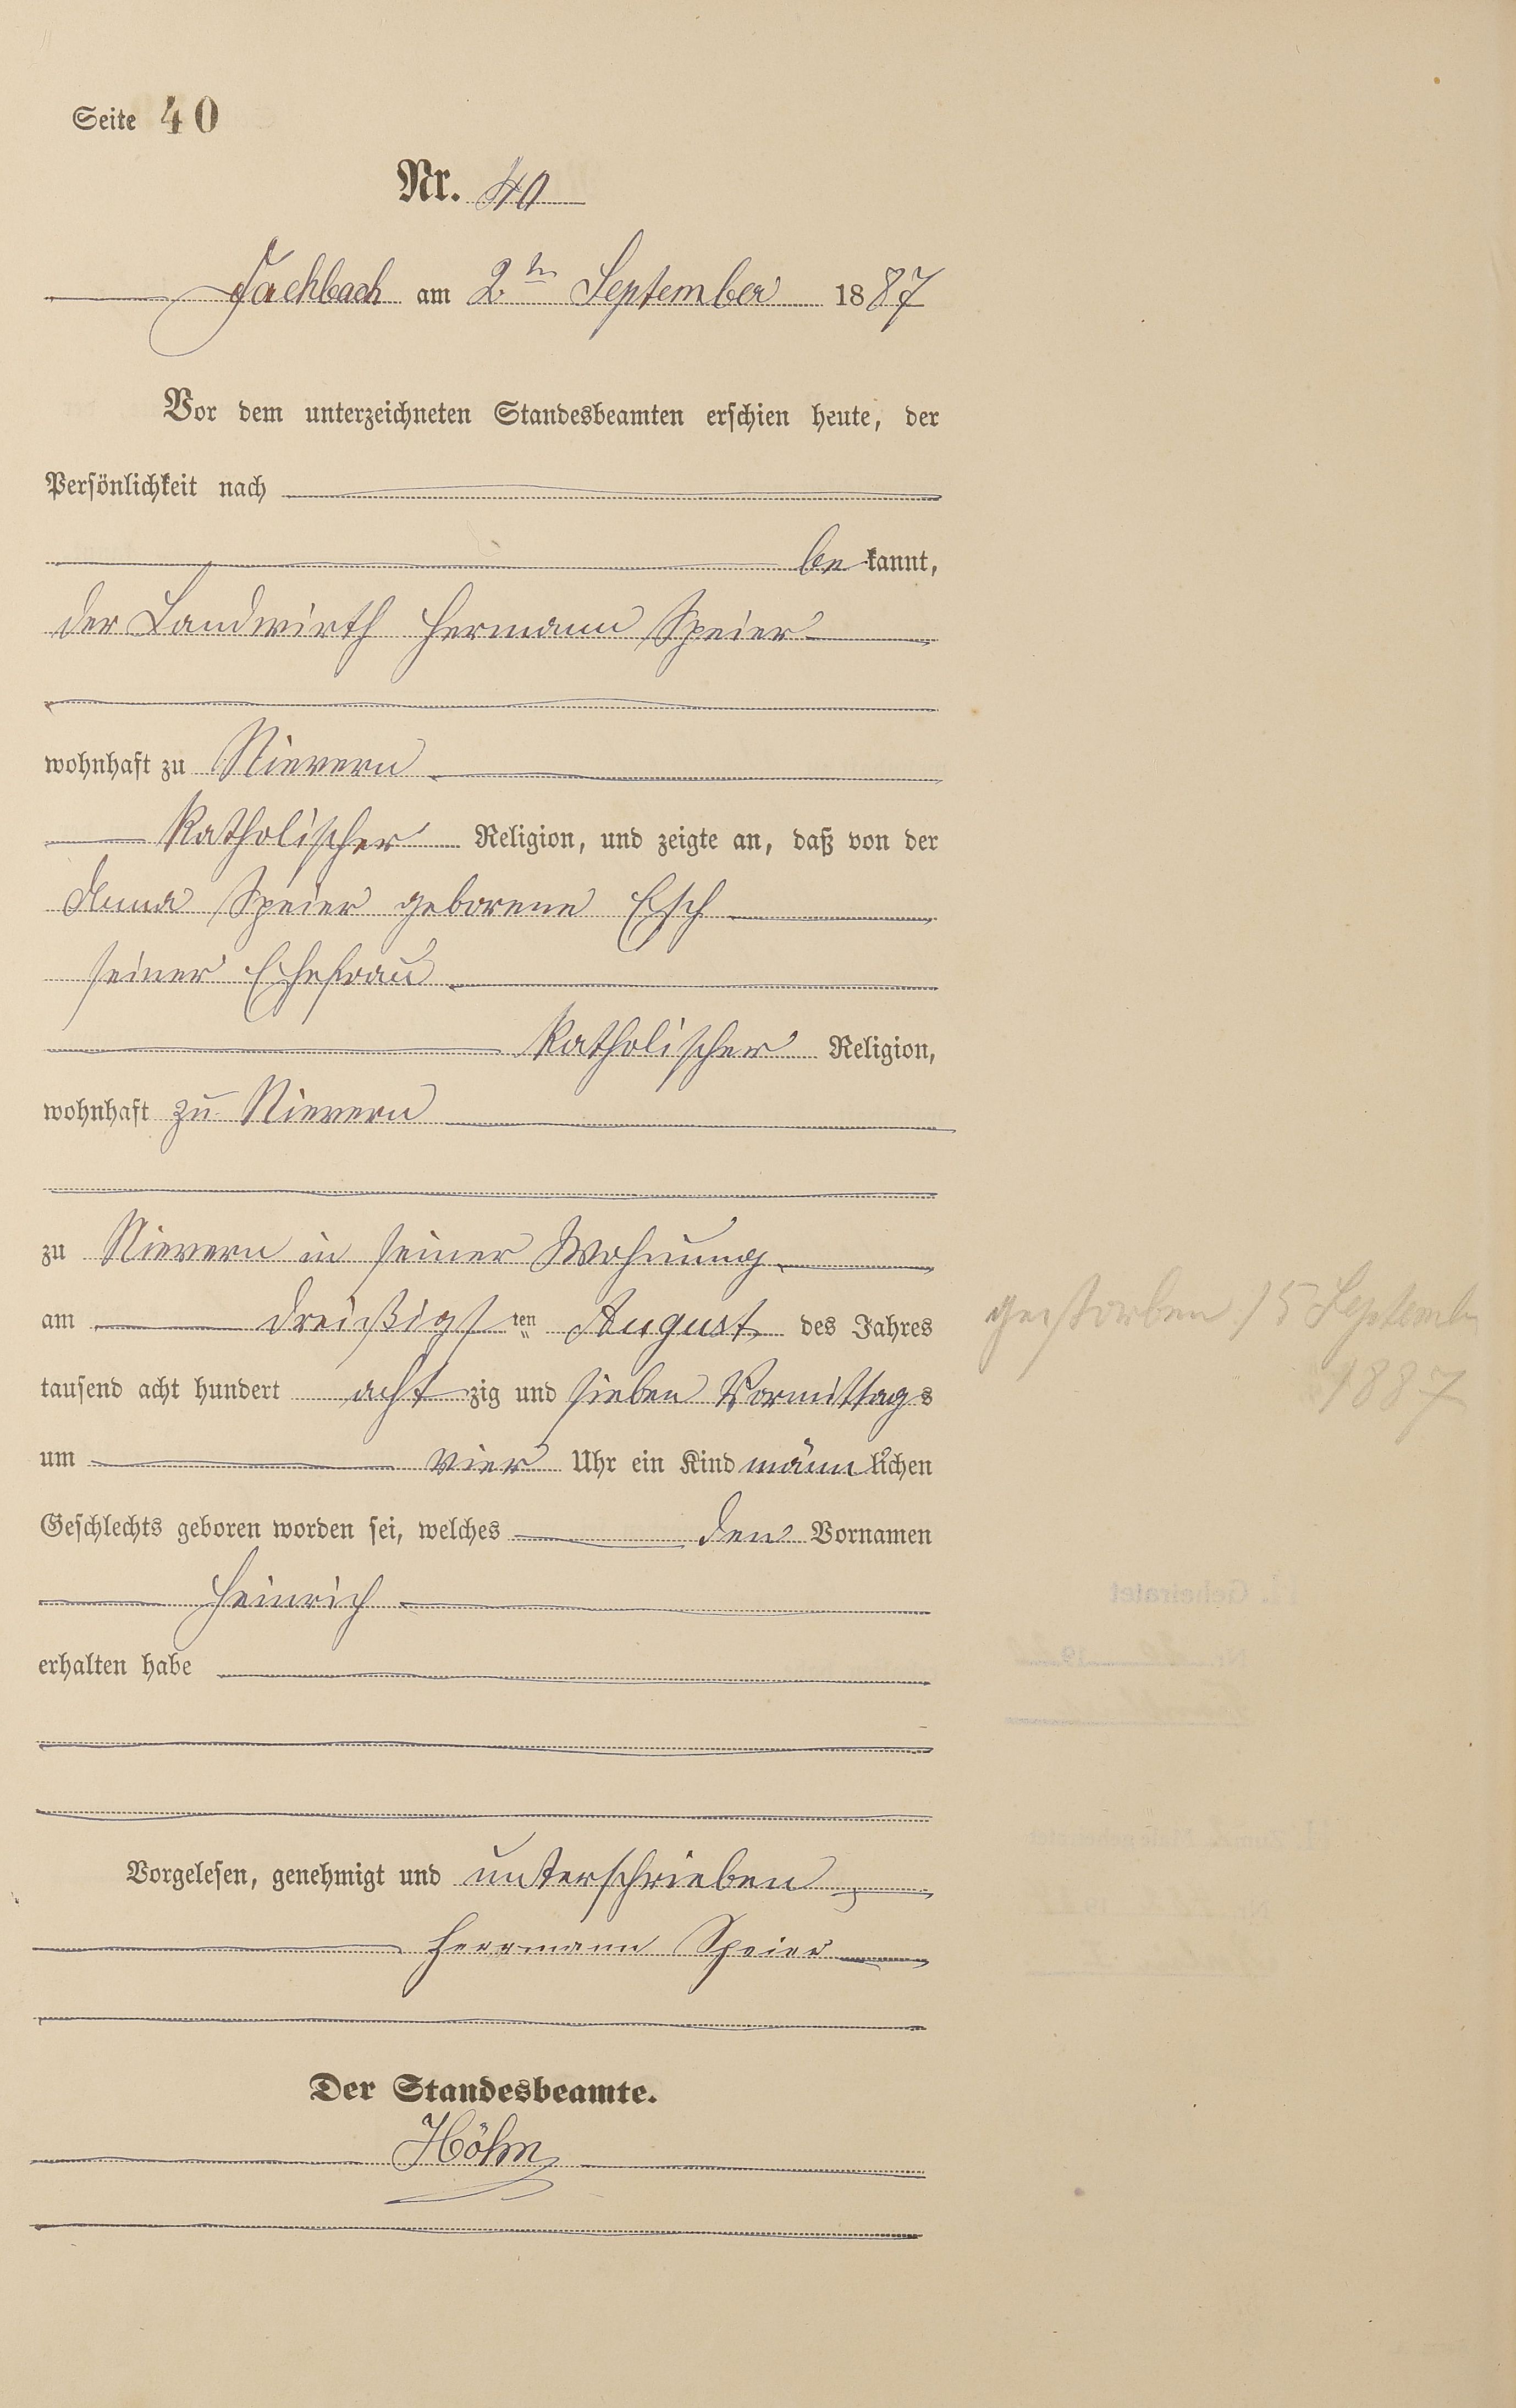 Seite 40
Nr. 40
Fachbach am 2ten September 1887
Vor dem unterzeichneten Standesbeamten erschien heute, der
Persönlichkeit nach
bekannt,
der Landwirth Hermann Speier
wohnhaft zu Nievern
katholischer Religion, und zeigte an, daß von der
Anna Speier geborene Esch
seiner Ehefrau
katholischer Religion,
wohnhaft zu Nievern
zu Nievern in seiner Wohnung
am dreißigsten August des Jahres
tausend acht hundert achtzig und sieben Vormittags
um vier Uhr ein Kind männlichen
Geschlechts geboren worden sei, welches den Vornamen
Heinrich
erhalten habe
gestorben 15 Septemb
1887
Vorgelesen, genehmigt und unterschrieben
Herrmann Speier
Der Standesbeamte.
Höhn